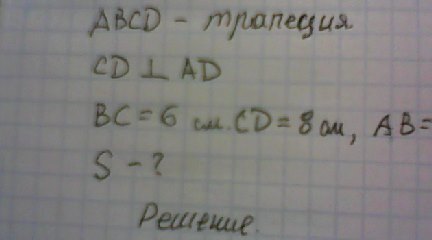 ABCD - трапеция
CD ⊥ AD
BC = 6 см. CD = 8 см, AB =
S - ?
Решение.